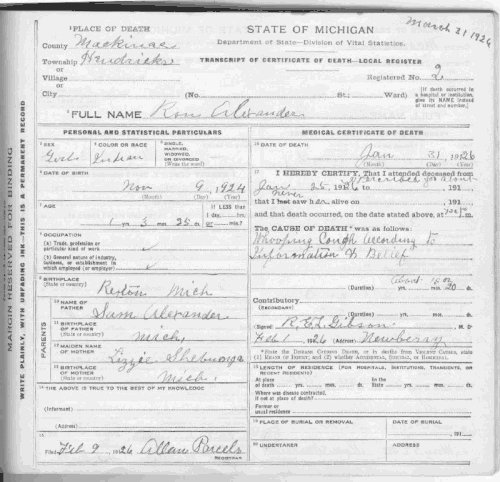 March 21 1926
1 PLACE OF DEATH
County Mackinac
Township Hendricks
or
Village
or
City (No. St.; Ward)
STATE OF MICHIGAN
Department of State—Division of Vital Statistics.
TRANSCRIPT OF CERTIFICATE OF DEATH—LOCAL REGISTER
Registered No. 2
[If death occurred in a hospital or institution, give its NAME instead of street and number.]
2 FULL NAME Alexander
PERSONAL AND STATISTICAL PARTICULARS
3 SEX
4 COLOR OR RACE
Indian
5 SINGLE, MARRIED, WIDOWED, OR DIVORCED
(Write the word)
6 DATE OF BIRTH
Nov 9, 1924
(Month) (Day) (Year)
7 AGE
If LESS than
1 day, hrs.
1 yrs. 3 mos. 25 ds. or min.?
8 OCCUPATION
(a) Trade, profession or
particular kind of work
(b) General nature of industry,
business, or establishment in
which employed (or employer)
9 BIRTHPLACE
(State or country)
Rexton Mich
PARENTS
10 NAME OF
FATHER
Sam Alexander
11 BIRTHPLACE
OF FATHER
(State or country)
Mich.
12 MAIDEN NAME
OF MOTHER
Lizzie
13 BIRTHPLACE
OF MOTHER
(State or country)
Mich.
14 THE ABOVE IS TRUE TO THE BEST OF MY KNOWLEDGE
(Informant)
(Address)
15
Filed Feb 9, 1926 Allan Parcels
REGISTRAR
MEDICAL CERTIFICATE OF DEATH
16 DATE OF DEATH
Jan 31 1926
(Month) (Day) (Year)
17 I HEREBY CERTIFY, That I attended deceased from
Jan 25, 1926 to , 191 ,
that I last saw h alive on , 191 ,
and that death occurred, on the date stated above, at m.
The CAUSE OF DEATH* was as follows:
Whooping Cough According to
Information & Belief
(Duration) yrs. mos. 20 ds.
Contributory
(SECONDARY)
(Duration) yrs. mos. ds.
(Signed) Gibson M. D.
Feb 1 1926 (Address) Newberry
*State the Disease Causing Death, or in deaths from Violent Causes, state (1) Means of Injury; and (2) whether Accidental, Suicidal, or Homicidal.
18 LENGTH OF RESIDENCE (FOR HOSPITALS, INSTITUTIONS, TRANSIENTS, OR RECENT RESIDENTS)
At place In the
of death yrs. mos. ds. State yrs. mos. ds.
Where was disease contracted,
if not at place of death?
Former or
usual residence
19 PLACE OF BURIAL OR REMOVAL
DATE OF BURIAL
, 191
20 UNDERTAKER
ADDRESS
MARGIN RESERVED FOR BINDING
WRITE PLAINLY, WITH UNFADING INK—THIS IS A PERMANENT RECORD